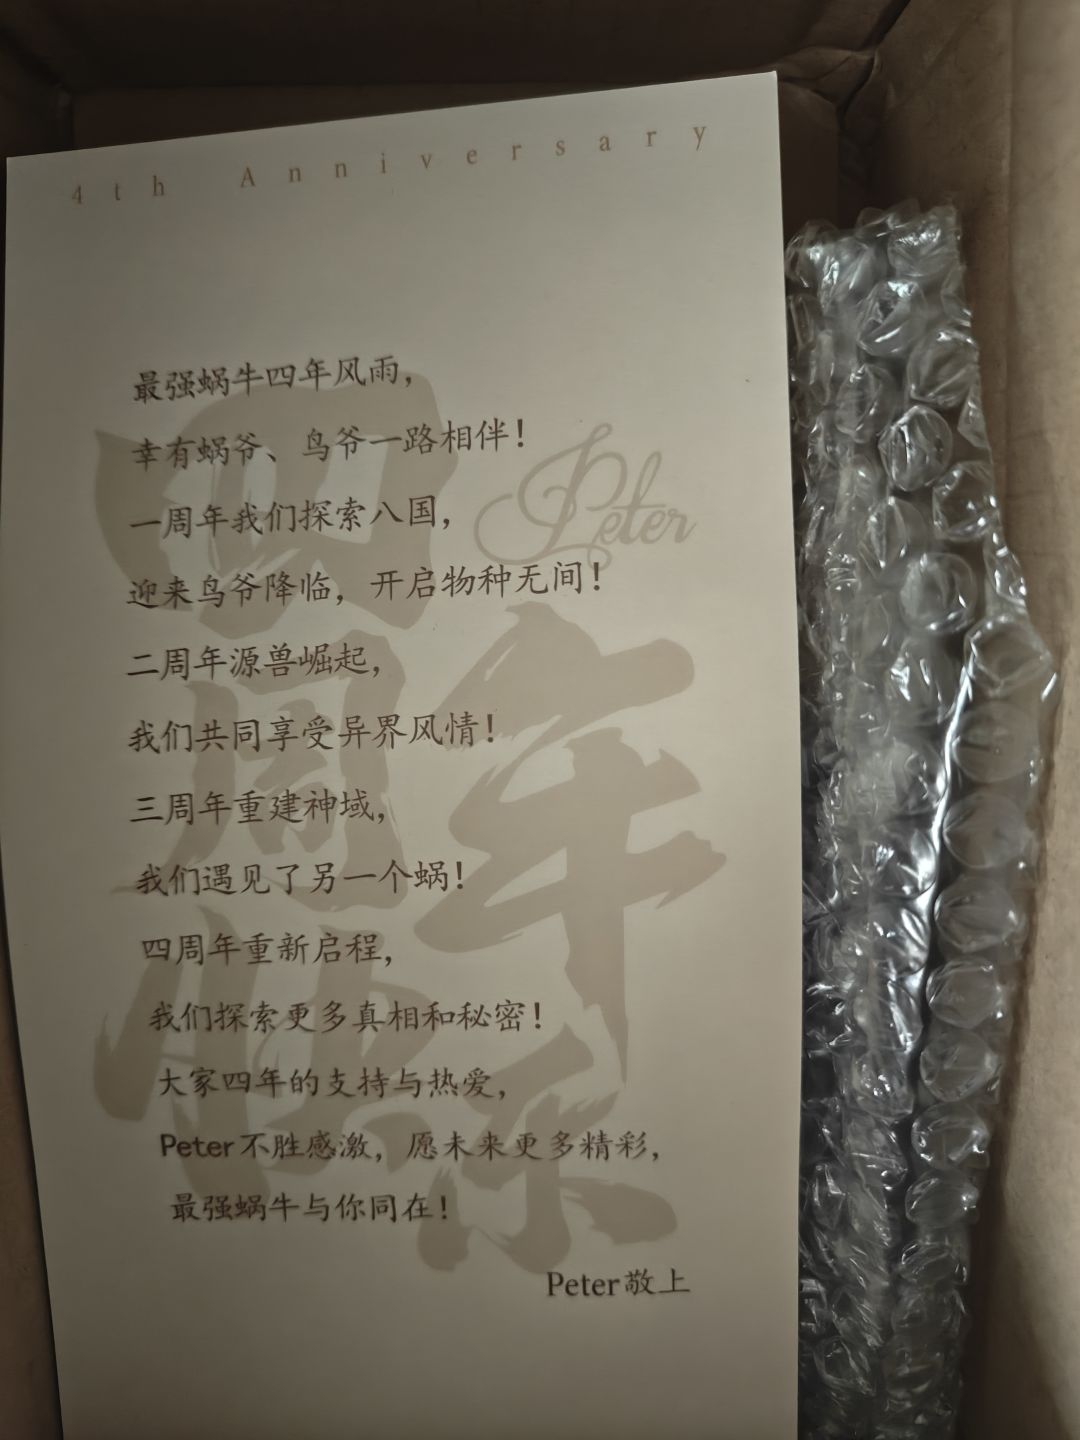 4th Anniversary
最强蜗牛四年风雨，
幸有蜗爷、鸟爷一路相伴！
一周年我们探索八国，
迎来鸟爷降临，开启物种无间！
二周年源兽崛起，
我们共同享受异界风情！
三周年重建神域，
我们遇见了另一个蜗！
四周年重新启程，
我们探索更多真相和秘密！
大家四年的支持与热爱，
Peter不胜感激，愿未来更多精彩，
最强蜗牛与你同在！
Peter敬上
四周年快乐
Peter